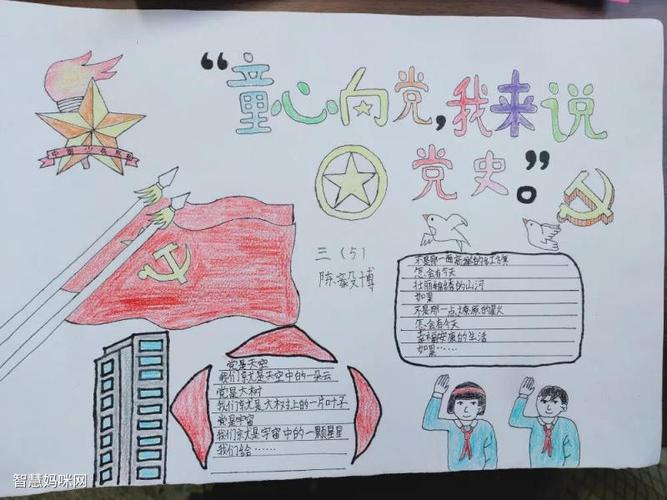 “童心向党,我来说
党史。”
中国少年先锋队
三（5）
陈毅博
不是那一面 的红旗
怎会有今天
壮丽锦绣的山河
如果
不是那一点燎原的星火
怎会有今天
幸福安康的生活
如果……
党是天空
我们就是天空中的一朵云
党是大树
我们就是大树上的一片叶子
党是宇宙
我们就是宇宙中的一颗星星
我们给……
智慧妈咪网